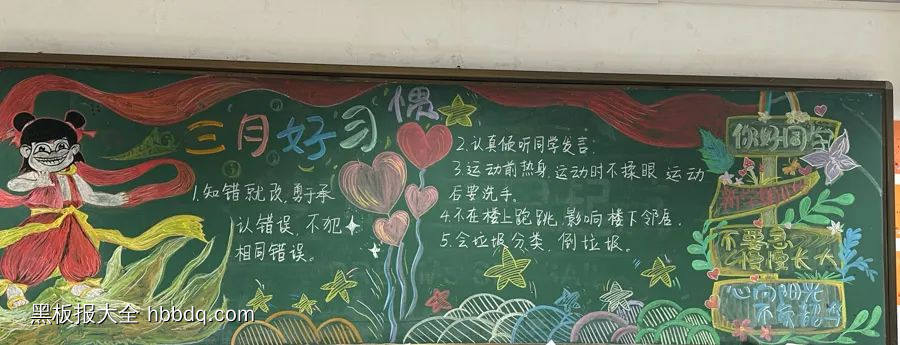 三月好习偶
1.知错就改,勇于承
认错误,不犯
相同错误。
2.认真倾听同学发言;
3.运动前热身,运动时不揉眼 运动
后要洗手。
4.不在楼上跑跳,影响楼下邻居.
5.会垃圾分类,倒垃圾。
你好同学
不要急
慢慢长大
心向阳光
黑板报大全 hbbdq.com